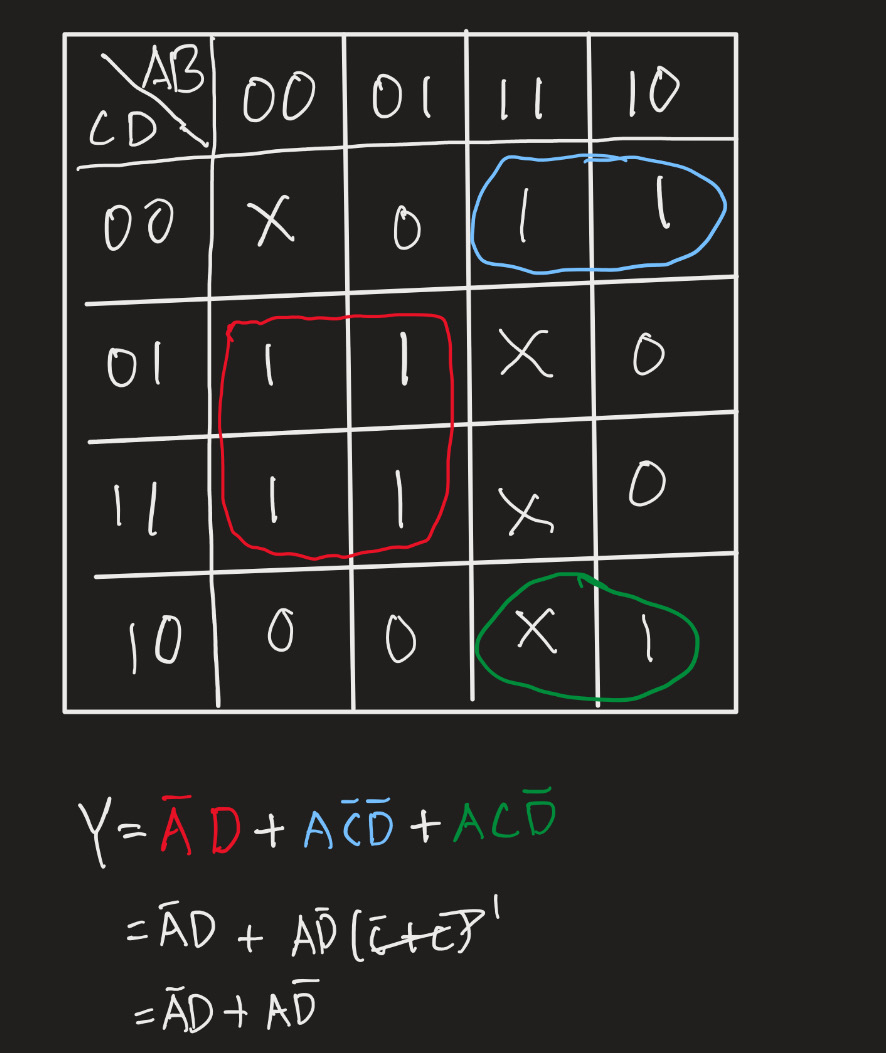 AB
CD
00 01 11 10
00 X 0 1 1
01 1 1 X 0
11 1 1 X 0
10 0 0 X 1
Y = A̅ D + A C̅ D̅ + A C D̅
= A̅ D + A D̅ ( C̅ + C ) 1
= A̅ D + A D̅